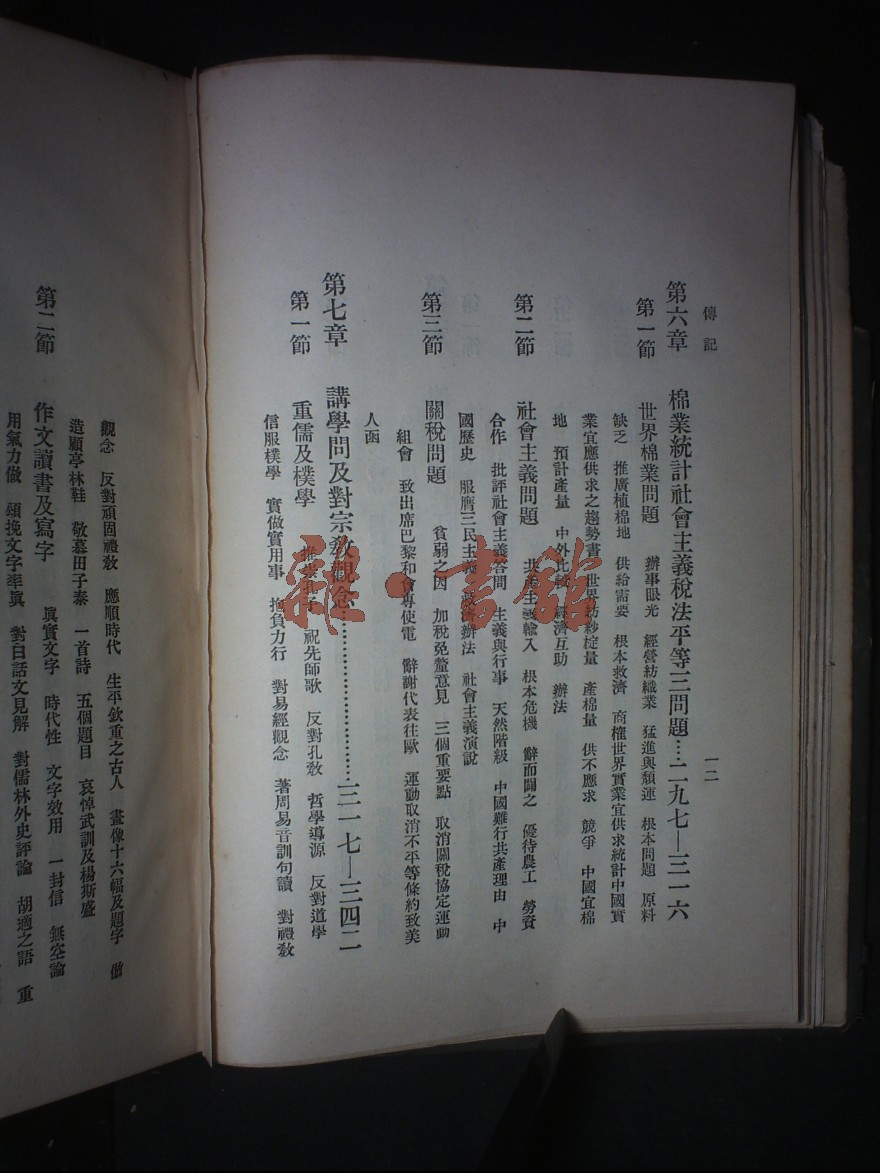 傳記
一二
第六章　棉業統計社會主義稅法平等三問題…二九七—三一六
第一節　世界棉業問題　辦事眼光　經營紡織業　猛進與頹運　根本問題　原料
缺乏　推廣植棉地　供給需要　根本救濟　商榷世界實業宜供求統計中國實
業宜應供求之趨勢書　世界紡紗錠量　產棉量　供不應求　競爭　中國宜棉
地　預計產量　中外比較　經濟互助　辦法
第二節　社會主義問題　共產主義輸入　根本危機　辭而闢之　優待農工　勞資
合作　批評社會主義答問　主義與行事　天然階級　中國難行共產理由　中
國歷史　服膺三民主義　救濟辦法　社會主義演說
第三節　關稅問題　貧弱之因　加稅免釐意見　三個重要點　取消關稅協定運動
組會　致出席巴黎和會專使電　辭謝代表往歐　運動取消不平等條約致美
人函
第七章　講學問及對宗教觀念……三一七—三四二
第一節　重儒及樸學　推崇孔子　祝先師歌　反對孔教　哲學導源　反對道學
信服樸學　實做實用事　抱負力行　對易經觀念　著周易音訓句讀　對禮教
觀念　反對頑固禮教　應順時代　生平欽重之古人　畫像十六幅及題字　倣
造顧亭林鞋　敬慕田子泰　一首詩　五個題目　哀悼武訓及楊斯盛
第二節　作文讀書及寫字　眞實文字　時代性　文字效用　一封信　無空論
用氣力做　頌挽文字率眞　對白話文見解　對儒林外史評論　胡適之語　重
雜·書館